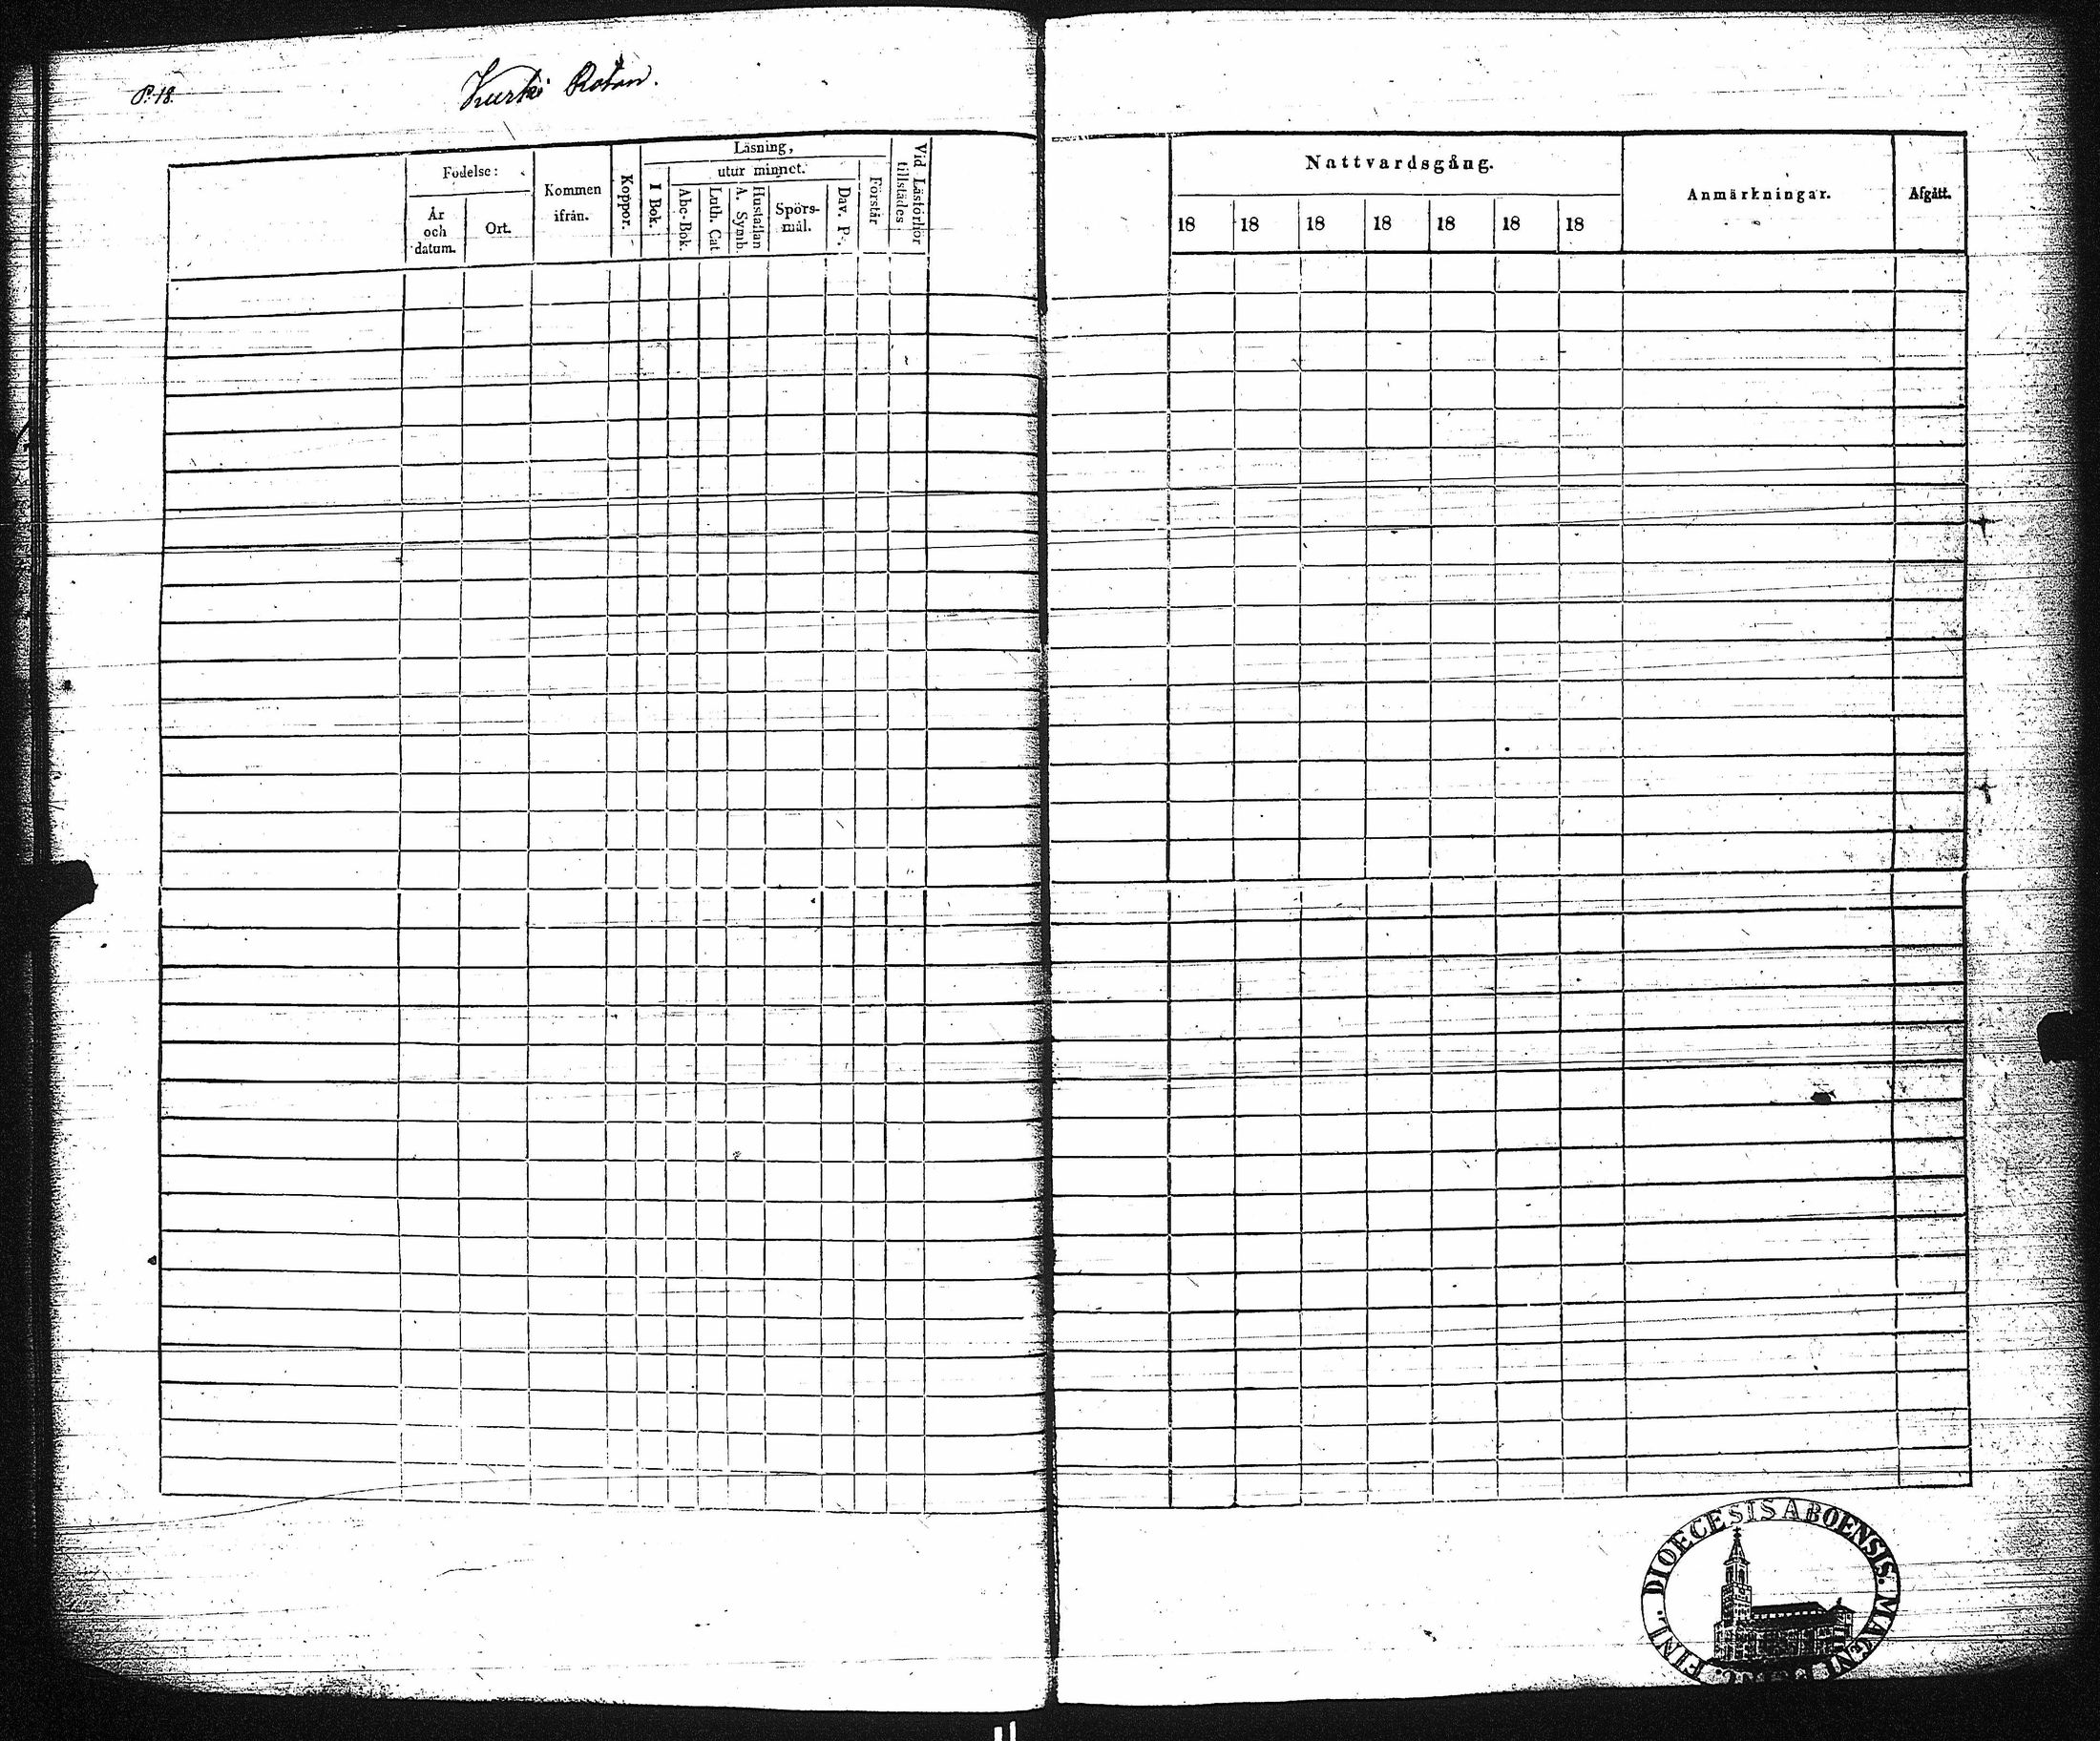 P. 18.
Kurki Rotan.
Födelse:
År och datum.
Ort.
Kommen ifrån.
Koppor.
Läsning,
utur minnet.
I Bok.
Abc-Bok.
Luth. Cat.
Hustaflan A. Symb.
Spörsmål.
Dav. Ps.
Förstår
Vid Läsförhör tillstädes.
Nattvardsgång.
18 18 18 18 18 18 18
Anmärkningar.
Afgått.
FINL. DIOECESIS ABOENSIS. MAGNI